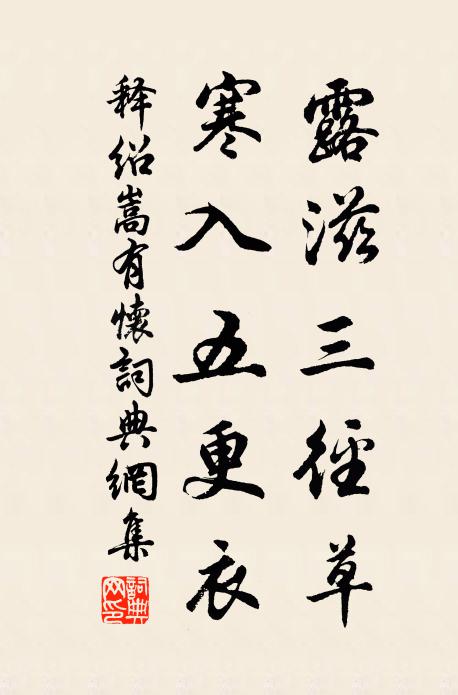 露滋三徑草
寒入五更衣
释绍嵩有懷詞典網集
詞典网印